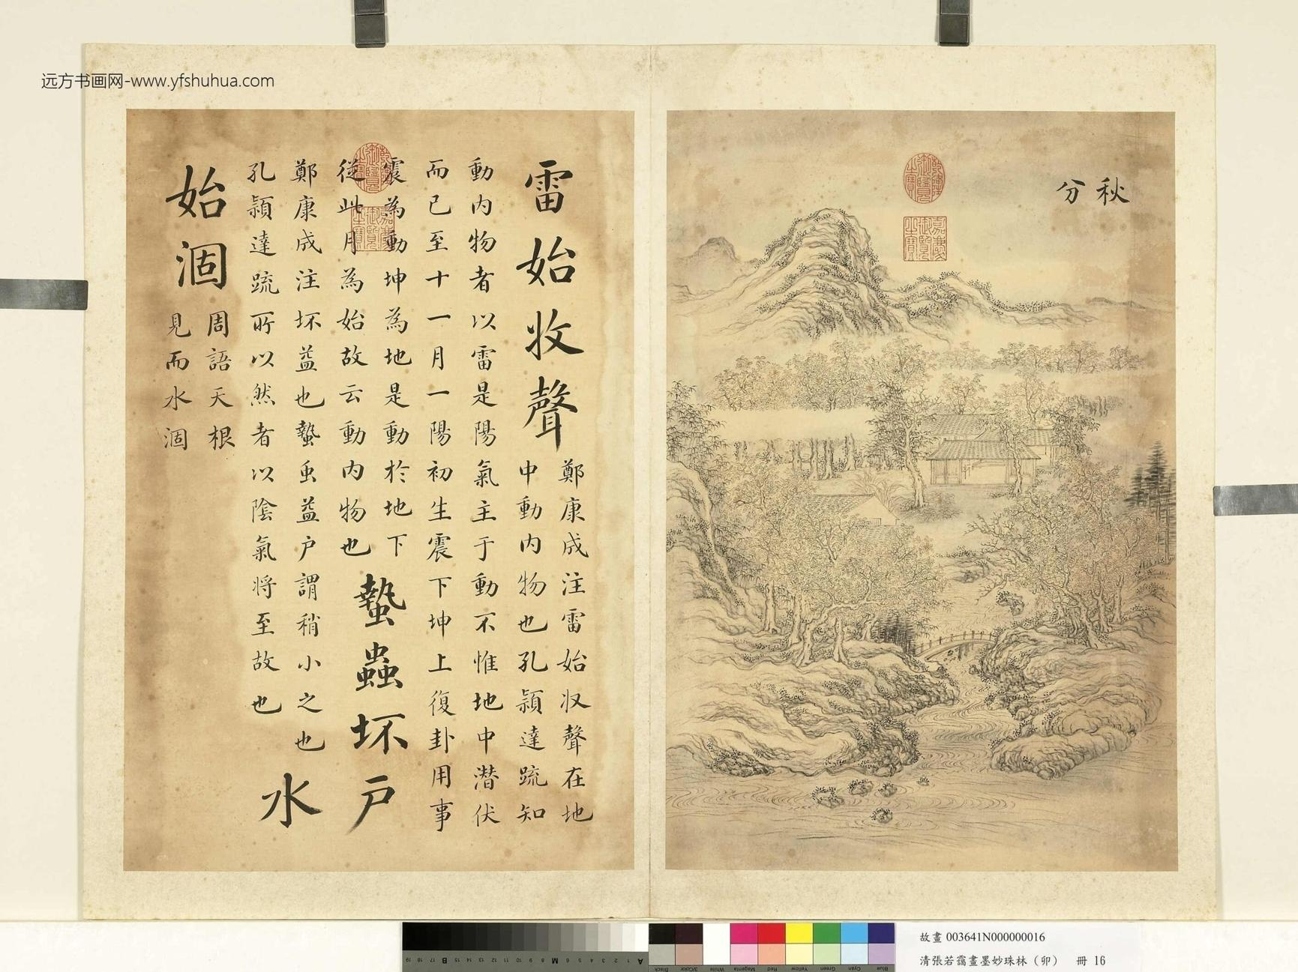 远方书画网-www.yfshuhua.com
秋分
雷始收聲
鄭康成注雷始収聲在地
中動內物也孔穎達疏知
動內物者以雷是陽氣主于動不惟地中潛伏
而已至十一月一陽初生震下坤上復卦用事
震為動坤為地是動於地下
從此月為始故云動內物也
蟄蟲坏戶
鄭康成注坏益也蟄虫益戶謂稍小之也
孔穎達疏所以然者以陰氣將至故也
水始涸
周語天根
見而水涸
故畫 003641N000000016
清張若靄畫墨妙珠林（卯） 冊 16